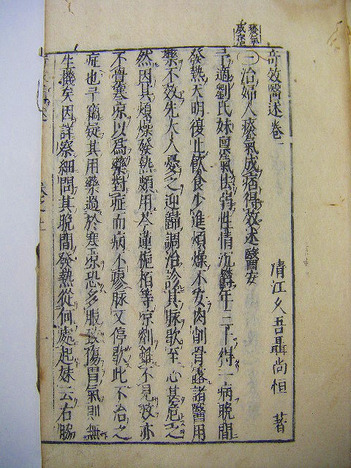 奇效醫述卷一
清江久吾聶尚恒著
痰氣
成痞
一治婦人痰氣成痞得效述醫案
予適劉氏妹稟氣怯弱性情沉鬱年三十得一病晚間
發熱天明復止飲食少進煩燥不安肉削骨露諸醫用
藥不效先大人憂之迎歸調治診其脉歇至心甚危之
然因其煩燥發熱頗用芩連梔柏等凉劑雖不見效亦
不覺寒凉以爲藥對症而病不瘳脉又停歇此不治之
症也予竊疑其用藥過於寒凉恐多服反傷胃氣則無
生機矣因詳察細問其晚間發熱從何處起妹云右脇